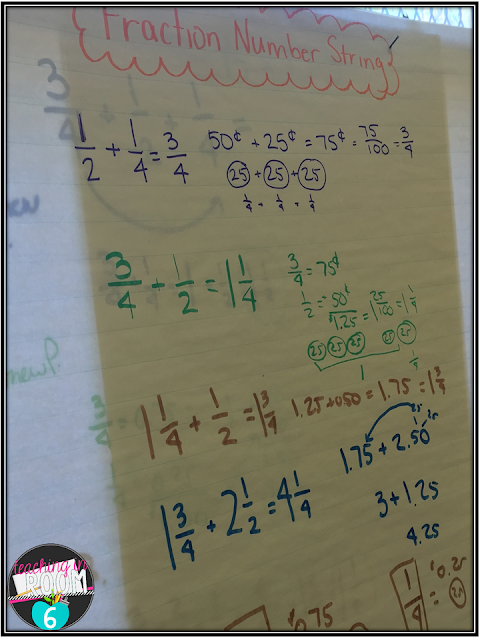 Fraction Number String
1/2 + 1/4 = 3/4
50¢ + 25¢ = 75¢ = 75/100 = 3/4
25 + 25 + 25
1/4 + 1/4 + 1/4
3/4 + 1/2 = 1 1/4
3/4 = 75¢
1/2 = 50¢
$1.25 = 1 25/100 = 1 1/4
25 25 25 25 25
1 1/4
1 1/4 + 1/2 = 1 3/4
1.25 + 0.50 = 1.75 = 1 3/4
1 3/4 + 2 1/2 = 4 1/4
.25 .25
1.75 + 2.50
3 + 1.25
4.25
1/4 = 0.25
25
0.75
3/4 + 1/2 + 1/4 =
new?
3/4
teaching in
ROOM
6